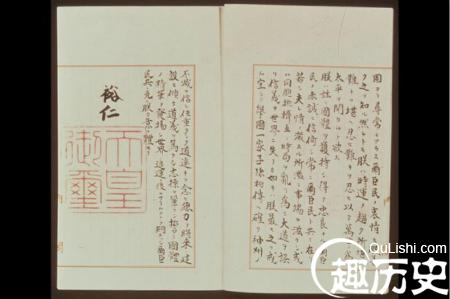 固ヨリ尋常ニアラス爾臣民ノ衷情モ朕善ク
之ヲ知ル然レトモ朕ハ時運ノ趨ク所堪ヘ
難キヲ堪ヘ忍ヒ難キヲ忍ヒ以テ萬世ノ為ニ
太平ヲ開カムト欲ス
朕ハ茲ニ國體ヲ護持シ得テ忠良ナル爾臣
民ノ赤誠ニ信倚シ常ニ爾臣民ト共ニ在リ
若シ夫レ情ノ激スル所濫ニ事端ヲ滋クシ或
ハ同胞排擠互ニ時局ヲ亂リ為ニ大道ヲ誤
リ信義ヲ世界ニ失フカ如キハ朕最モ之ヲ戒
ム宜シク擧國一家子孫相傳ヘ確ク神州ノ
不滅ヲ信シ任重クシテ道遠キヲ念ヒ總力ヲ將來ノ建
設ニ傾ケ道義ヲ篤クシ志操ヲ鞏クシ誓テ國體
ノ精華ヲ發揚シ世界ノ進運ニ後レサラムコトヲ期スヘシ爾臣
民其レ克ク朕カ意ヲ體セヨ
裕仁
天皇
御璽
QuLishi.com
趣历史